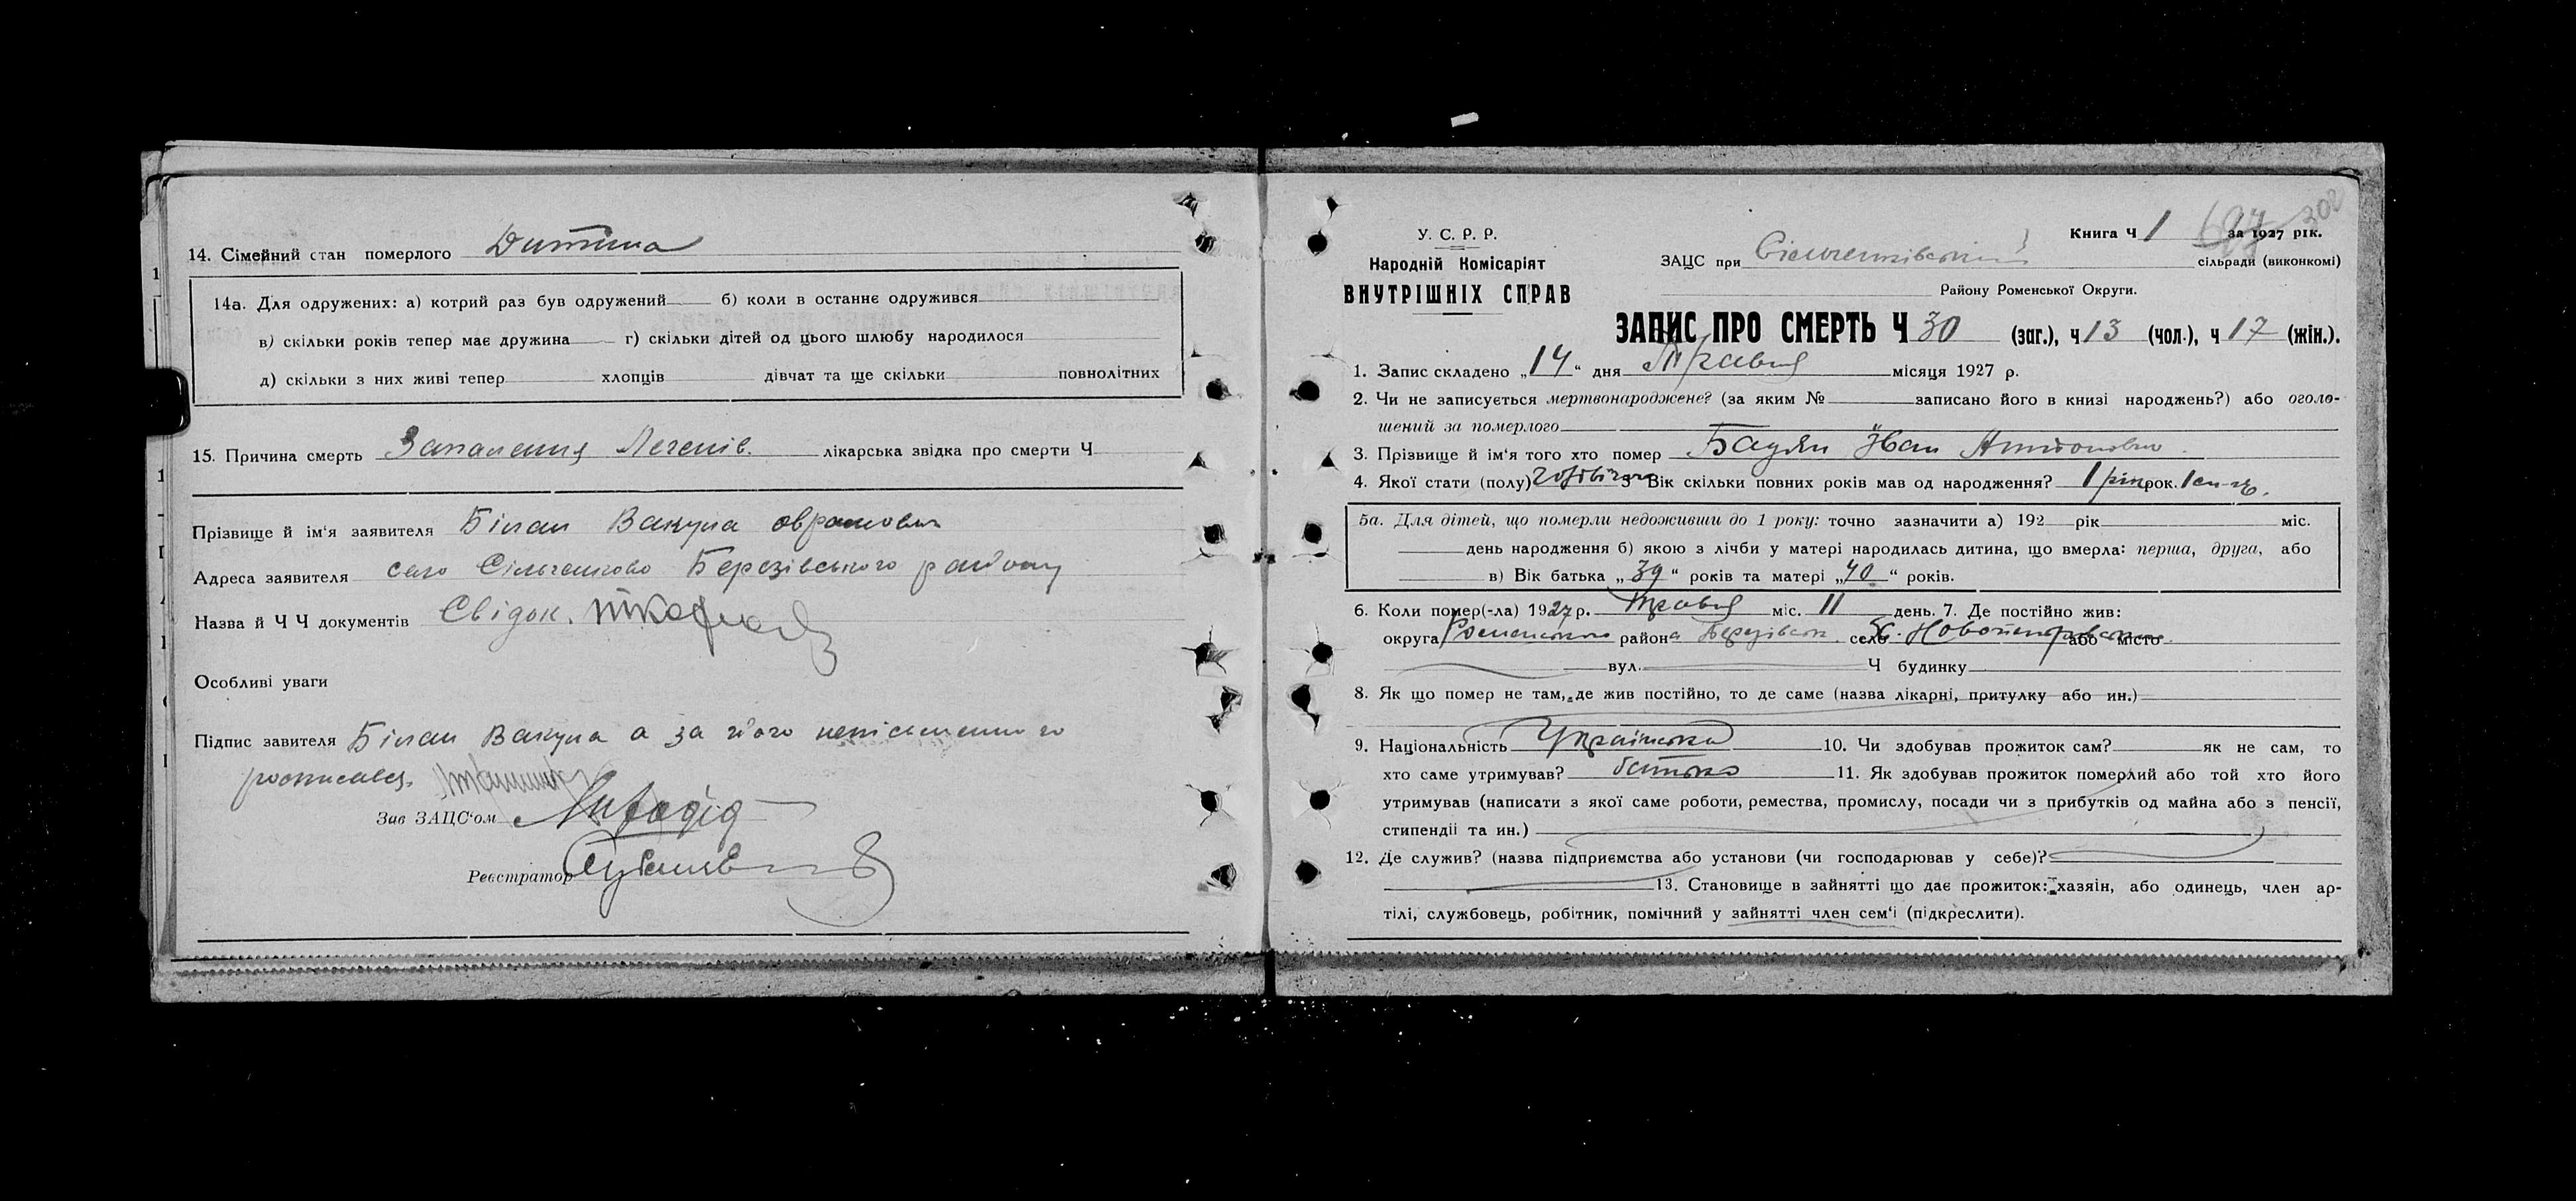 14. Сімейний стан померлого Дитина
14а. Для одружених: а) котрий раз був одружений б) коли в останнє одружився
в) скільки років тепер має дружина г) скільки дітей од цього шлюбу народилося
д) скільки з них живі тепер хлопців дівчат та ще скільки повнолітних
15. Причина смерть Запалення Легенів. лікарська звідка про смерти Ч
Прізвище й ім'я заявителя Білан Вакула
Адреса заявителя село Сільченково Березівського району
Назва й Ч Ч документів Свідок.
Особливі уваги
Підпис завителя Білан Вакула а за його неписьменного
росписався
Зав ЗАЦС'ом
Реєстратор
У. С. Р. Р.
Народній Комісаріят
ВНУТРІШНІХ СПРАВ
Книга Ч 1 за 1927 рік.
ЗАЦС при сільради (виконкомі)
Району Роменської Округи.
ЗАПИС ПРО СМЕРТЬ Ч 30 (заг.), ч 13 (чол.), ч 17 (жін.).
1. Запис складено „14" дня Травня місяця 1927 р.
2. Чи не записується мертвонароджене? (за яким № записано його в книзі народжень?) або оголо-
шений за померлого
3. Прізвище й ім'я того хто помер Іван Антонович
4. Якої стати (полу) 5 Вік скільки повних років мав од народження? 1 рік рок.
5а. Для дітей, що померли недоживши до 1 року: точно зазначити а) 192 рік міс.
день народження б) якою з лічби у матері народилась дитина, що вмерла: перша, друга, або
в) Вік батька „39" років та матері „40" років.
6. Коли помер(-ла) 1927 р. Травня міс. 11 день. 7. Де постійно жив:
округа Роменського района Березівськ. село або місто
вул. Ч будинку
8. Як що помер не там, де жив постійно, то де саме (назва лікарні, притулку або ин.)
9. Національність Українська 10. Чи здобував прожиток сам? як не сам, то
хто саме утримував? батько 11. Як здобував прожиток померлий або той хто його
утримував (написати з якої саме роботи, ремества, промислу, посади чи з прибутків од майна або з пенсії,
стипендії та ин.)
12. Де служив? (назва підприємства або установи (чи господарював у себе)?
13. Становище в зайнятті що дає прожиток: хазяін, або одинець, член ар-
тілі, службовець, робітник, помічний у зайнятті член сем'і (підкреслити).